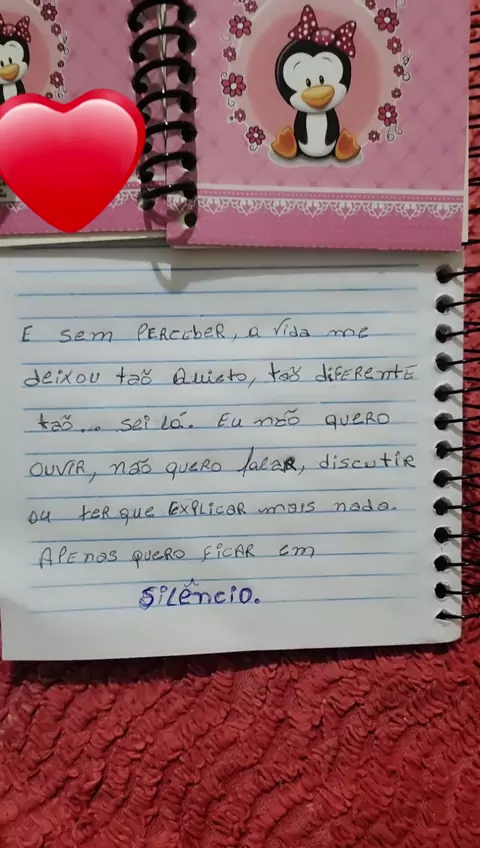 E sem PERCEBER, a vida me
deixou tão quieto, tão diFERENTE
tão... sei lá. Eu não QUERO
OUVIR, não quero falar, discutir
ou ter que EXPLICAR mais nada.
APENAS QUERO FICAR Em
SILÊNCIO.